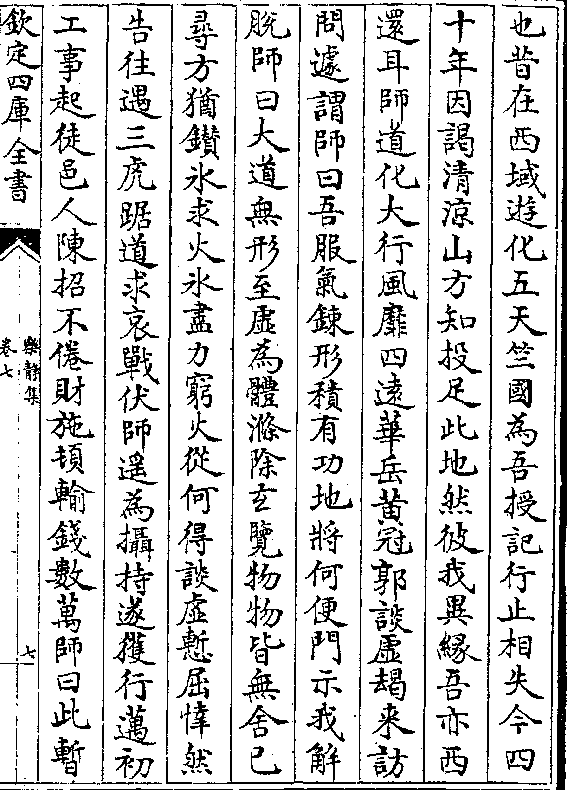 也昔在西域遊化五天竺國為吾授記行止相失今四
十年因謁清涼山方知投足此地然彼我異緣吾亦西
還耳師道化大行風靡四遠華岳黃冠郭談虛朅來訪
問遽謂師曰吾服氣鍊形積有功地將何便門示我解
脫師曰大道無形至虛為體滌除玄覽物物皆無舍已
尋方猶鑚氷求火氷盡力窮火從何得談虛慙屈悻然
告往遇三虎踞道求哀戰伏師遥為攝持遂獲行邁初
工事起徒邑人陳招不倦財施頓輸錢數萬師曰此暫
欽定四庫全書
樂靜集
卷七
七